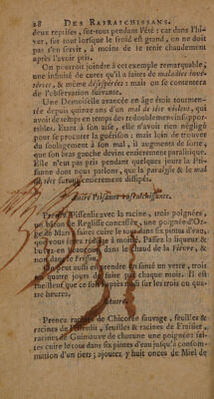 28 DES RAFRAICHISSANS.
deux reprises, sur-tout pendant l'Eté : car dans l'Hi-
ver, sur-tout lorsque le froid est grand, on ne doit
pas s'en servir, à moins de se tenir chaudement
après l'avoir pris.
On pourroit joindre à cet exemple remarquable,
une infinité de cures qu'il a faites de maladies invé-
térées, & même désespérées ; mais on se contentera
de l'observation suivante.
Une Demoiselle avancée en âge étoit tourmen-
tée depuis quinze ans d'un mal de tête violent, qui
avoit de temps en temps des redoublemens insuppor-
tables. Etant à son aise, elle n'avoit rien négligé
pour se procurer la guérison ; mais loin de trouver
du soulagement à son mal, il augmenta de sorte,
que son bras gauche devint entièrement paralitique.
Elle n'eut pas pris pendant quelques jours la Pti-
sanne dont nous parlons, que la paralysie & le mal
furent entièrement dissipés.
Autre Ptisanne
Prenez Pissenlis avec la racine, trois poignées,
un bâton de Reglisse concassée, une poignée d'Or-
faire cuire le tout dans six pintes d'eau,
à moitié. Passez la liqueur &
dans le chaud de la Fièvre,
de Frisson.
prendre un verre, trois
quatre jours de chaque mois. Il est
meilleur que ce soit pris sur les trois ou qua-
tre heures.
Autre
Prenez racines de Chicorée sauvage, feuilles &
racines de feuilles & racines de Fraisier,
racines de Guimauve de chacune une poignée ; fai-
tes cuire le tout dans six pintes d'eau jusqu'à consom-
mation d'un tiers ; ajoutez-y huit onces de Miel de